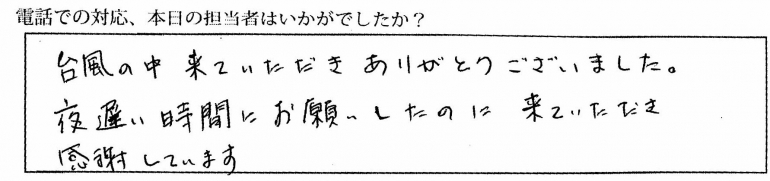 電話での対応、本日の担当者はいかがでしたか？
台風の中来ていただきありがとうございました。
夜遅い時間にお願いしたのに来ていただき
感謝しています